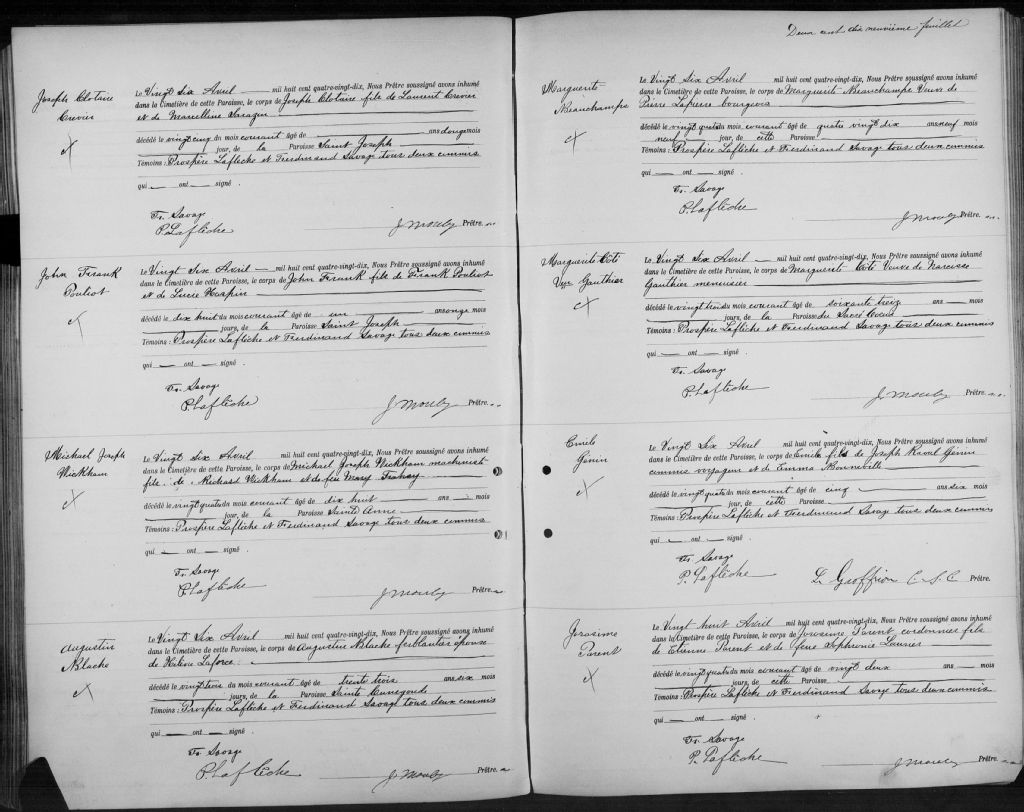 Joseph Clotaire
Crevier
Le Vingt Six Avril — mil huit cent quatre-vingt-dix, Nous Prêtre soussigné avons inhumé
dans le Cimetière de cette Paroisse, le corps de Joseph Clotaire fils de Laurent Crevier
et de Marcelline
décédé le vingt cinq du mois courant âgé de — ans douze mois
— jour, de la Paroisse Saint Joseph
Témoins : Prospère Laflèche et Ferdinand Savage tous deux commis
qui — ont — signé .
Fr. Savage
P. Laflèche
J Mouly Prêtre.
John Frank
Pouliot
Le Vingt Six Avril — mil huit cent quatre-vingt-dix, Nous Prêtre soussigné avons inhumé
dans le Cimetière de cette Paroisse, le corps de John Frank fils de Frank Pouliot
et de Lucie
décédé le dix huit du mois courant âgé de un ans onze mois
— jours, de la Paroisse Saint Joseph
Témoins : Prospère Laflèche et Ferdinand Savage tous deux commis
qui — ont — signé .
Fr. Savage
P. Laflèche
J Mouly Prêtre.
Michael Joseph
Wickham
Le Vingt Six Avril mil huit cent quatre-vingt-dix, Nous Prêtre soussigné avons inhumé
dans le Cimetière de cette Paroisse, le corps de Michael Joseph Wickham machiniste
fils de Richard Wickham et de feu Mary
décédé le vingt quatre du mois courant âgé de dix huit ans — mois
— jour, de la Paroisse Sainte Anne
Témoins : Prospère Laflèche et Ferdinand Savage tous deux commis
qui — ont — signé .
Fr. Savage
P. Laflèche
J Mouly Prêtre.
Augustin
Blache
Le Vingt Six Avril mil huit cent quatre-vingt-dix, Nous Prêtre soussigné avons inhumé
dans le Cimetière de cette Paroisse, le corps de Augustin Blache ferblantier époux
de Laforce
décédé le vingt trois du mois courant âgé de trente trois ans six mois
— jours, de la Paroisse Sainte Cunegonde
Témoins : Prospère Laflèche et Ferdinand Savage tous deux commis
qui — ont — signé .
Fr. Savage
P. Laflèche
J Mouly Prêtre.
Deux cent dix neuvième feuillet
Marguerite
Beauchampe
Le Vingt Six Avril — mil huit cent quatre-vingt-dix, Nous Prêtre soussigné avons inhumé
dans le Cimetière de cette Paroisse, le corps de Marguerite Beauchampe Veuve de
Pierre Lapierre bourgeois
décédé le vingt quatre du mois courant âgé de quatre vingt dix ans neuf mois
neuf jour, de cette Paroisse
Témoins : Prospère Laflèche et Ferdinand Savage tous deux commis
qui — ont — signé .
Fr. Savage
P. Laflèche
J Mouly Prêtre.
Marguerite Côté
Vve Gauthier
Le Vingt Six Avril — mil huit cent quatre-vingt-dix, Nous Prêtre soussigné avons inhumé
dans le Cimetière de cette Paroisse, le corps de Marguerite Côté Veuve de Narcisse
Gauthier menuisier
décédé le vingt trois du mois courant âgé de soixante treize ans — mois
— jours, de la Paroisse du Sacré Coeur
Témoins : Prospère Laflèche et Ferdinand Savage tous deux commis
qui — ont — signé .
Fr. Savage
P. Laflèche
J Mouly Prêtre.
Emile
Génin
Le Vingt Six Avril mil huit cent quatre-vingt-dix, Nous Prêtre soussigné avons inhumé
dans le Cimetière de cette Paroisse, le corps de Emile fils de Joseph Génin
commis voyageur et de Emma
décédé le vingt quatre du mois courant âgé de cinq ans six mois
— jour, de cette Paroisse
Témoins : Prospère Laflèche et Ferdinand Savage tous deux commis
qui — ont — signé .
Fr. Savage
P. Laflèche
L. Geoffrion C.S.C Prêtre.
Jerosime
Parent
Le Vingt huit Avril mil huit cent quatre-vingt-dix, Nous Prêtre soussigné avons inhumé
dans le Cimetière de cette Paroisse, le corps de Jerosime Parent cordonnier fils
de Etienne Parent et de feue Sophronie Laurier
décédé le vingt quatre du mois courant âgé de vingt deux ans — mois
— jours, de cette Paroisse
Témoins : Prospère Laflèche et Ferdinand Savage tous deux commis
qui — ont — signé .
Fr. Savage
P. Laflèche
J Mouly Prêtre.